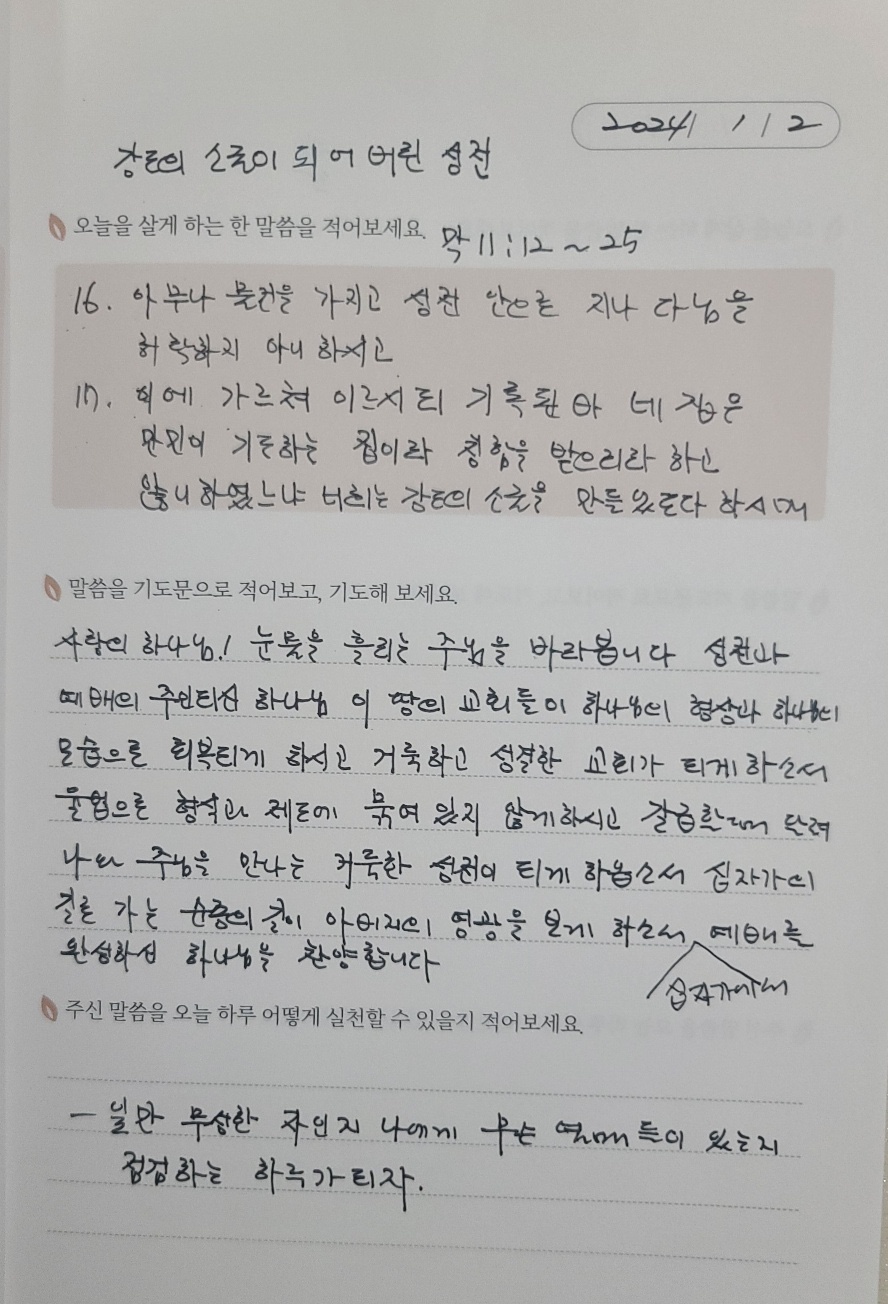 2024/ 1/2
강도의 소굴이 되어 버린 성전
오늘을 살게 하는 한 말씀을 적어보세요.
막 11:12~25
16. 아무나 물건을 가지고 성전 안으로 지나 다님을
허락하지 아니 하시고
17. 이에 가르쳐 이르시되 기록된 바 내 집은
만민이 기도하는 집이라 칭함을 받으리라 하고
않니 하였느냐 너희는 강도의 소굴을 만들었도다 하시며
말씀을 기도문으로 적어보고, 기도해 보세요.
사랑의 하나님! 눈물을 흘리는 주님을 바라봅니다 성전과
예배의 주인되신 하나님 이 땅의 교회들이 하나님의 형상과 하나님의
모습으로 회복되게 하시고 거룩하고 성결한 교회가 되게 하소서
형식과 제도에 묶여 있지 않게하시고 갈급할때 달려
나와 주님을 만나는 거룩한 성전이 되게 하옵소서 십자가의
길로 가는 순종의 길이 아버지의 영광을 보게 하소서 예배를
십자가에서
완성하신 하나님을 찬양합니다
주신 말씀을 오늘 하루 어떻게 실천할 수 있을지 적어보세요.
- 잎만 무성한 자인지 나에게 무슨 열매들이 있는지
점검하는 하루가 되자.